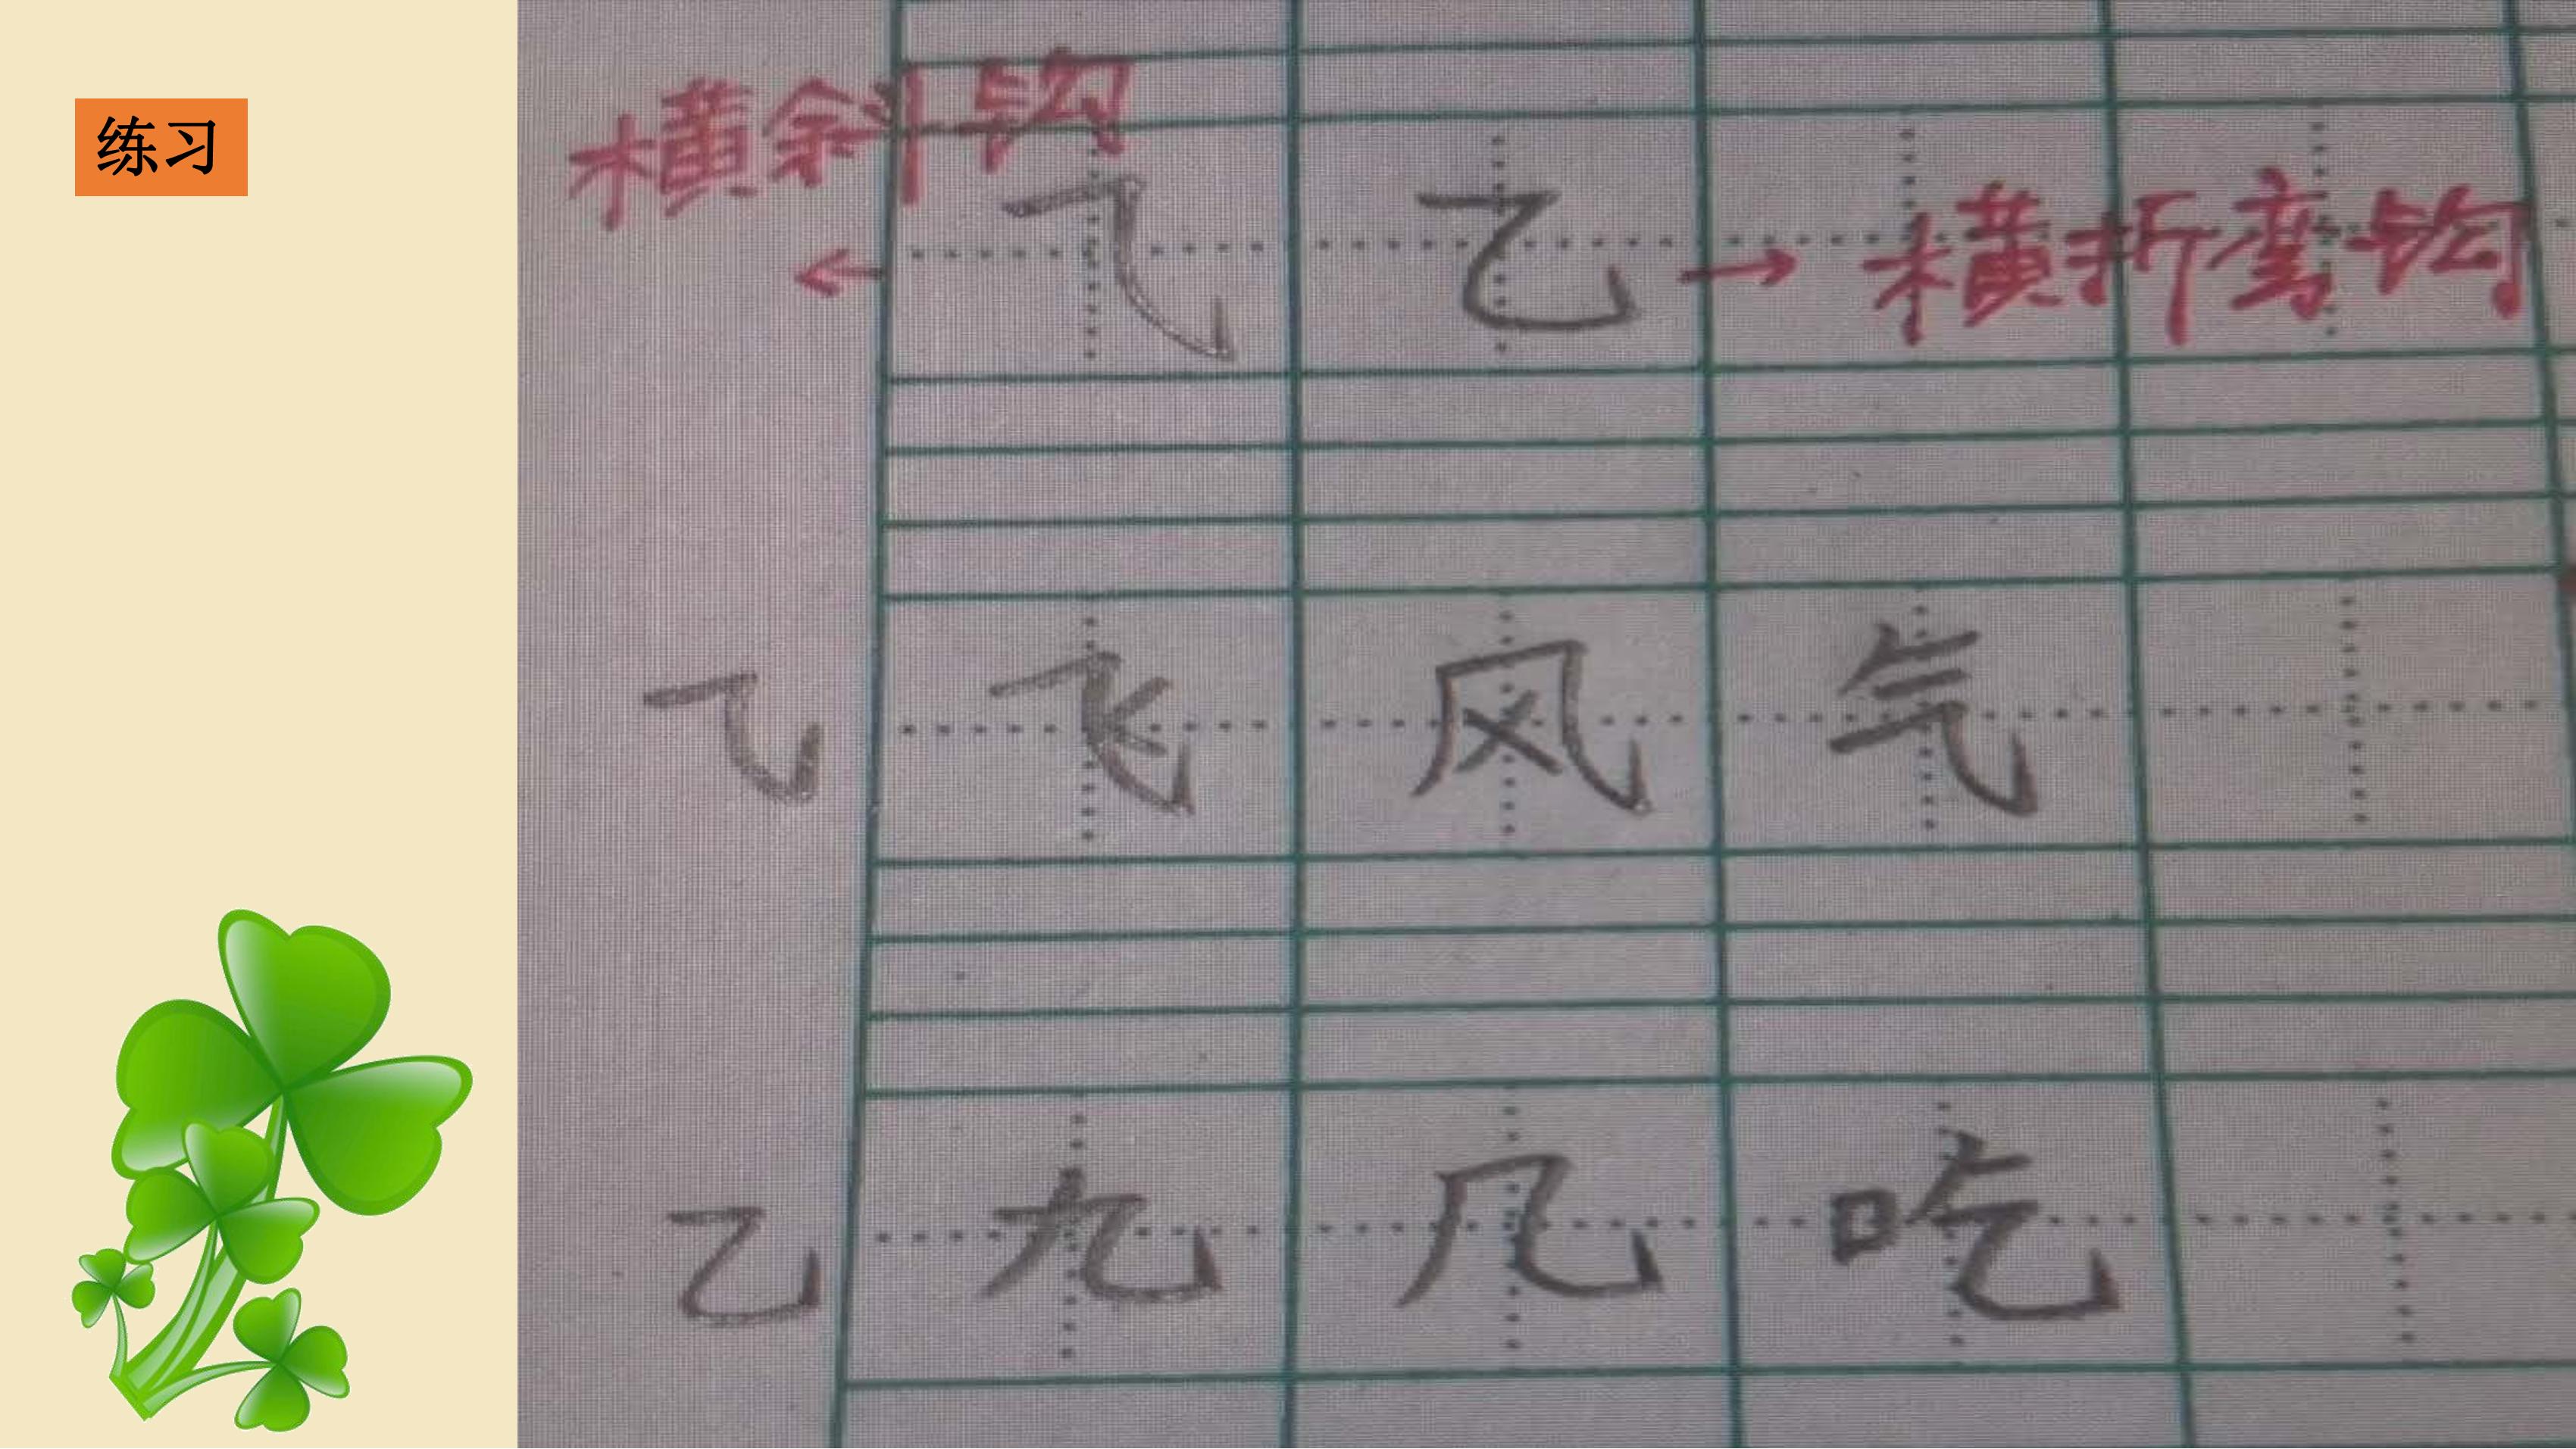 练习
横斜钩
⺄ 乙 → 横折弯钩
←
⺄ 飞 风 气
乙 九 几 吃